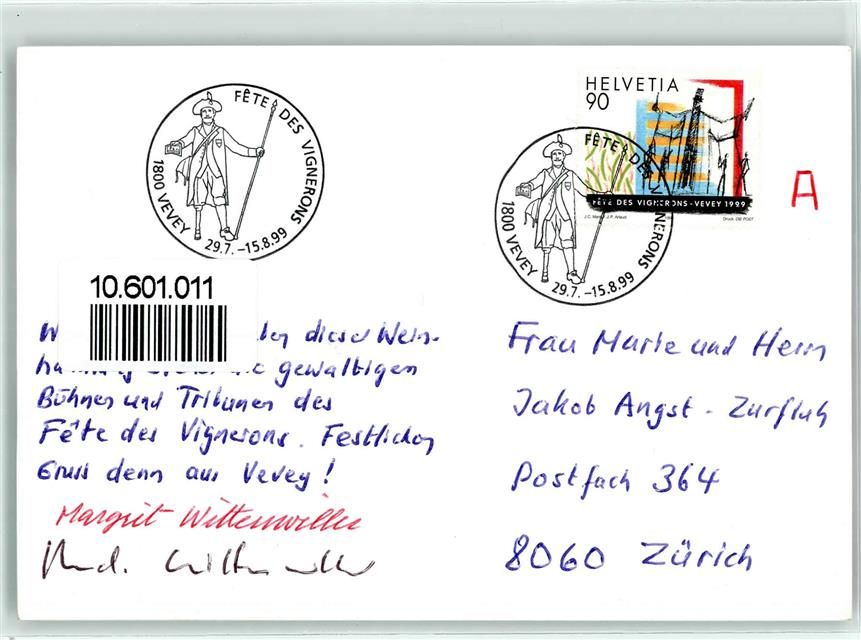 FÊTE DES VIGNERONS
1800 VEVEY
29.7. –15.8.99
HELVETIA
90
FÊTE DES VIGNERONS - VEVEY 1999
FÊTE DES VIGNERONS
1800 VEVEY
29.7. –15.8.99
A
10.601.011
dieser Wein-
gewaltigen
Bühnen und Tribünen des
Fête des Vignerons. Festlichen
Gruss denn aus Vevey!
Margrit Wittenwiller
Frau Marie und Herrn
Jakob Angst - Zurfluh
Postfach 364
8060 Zürich